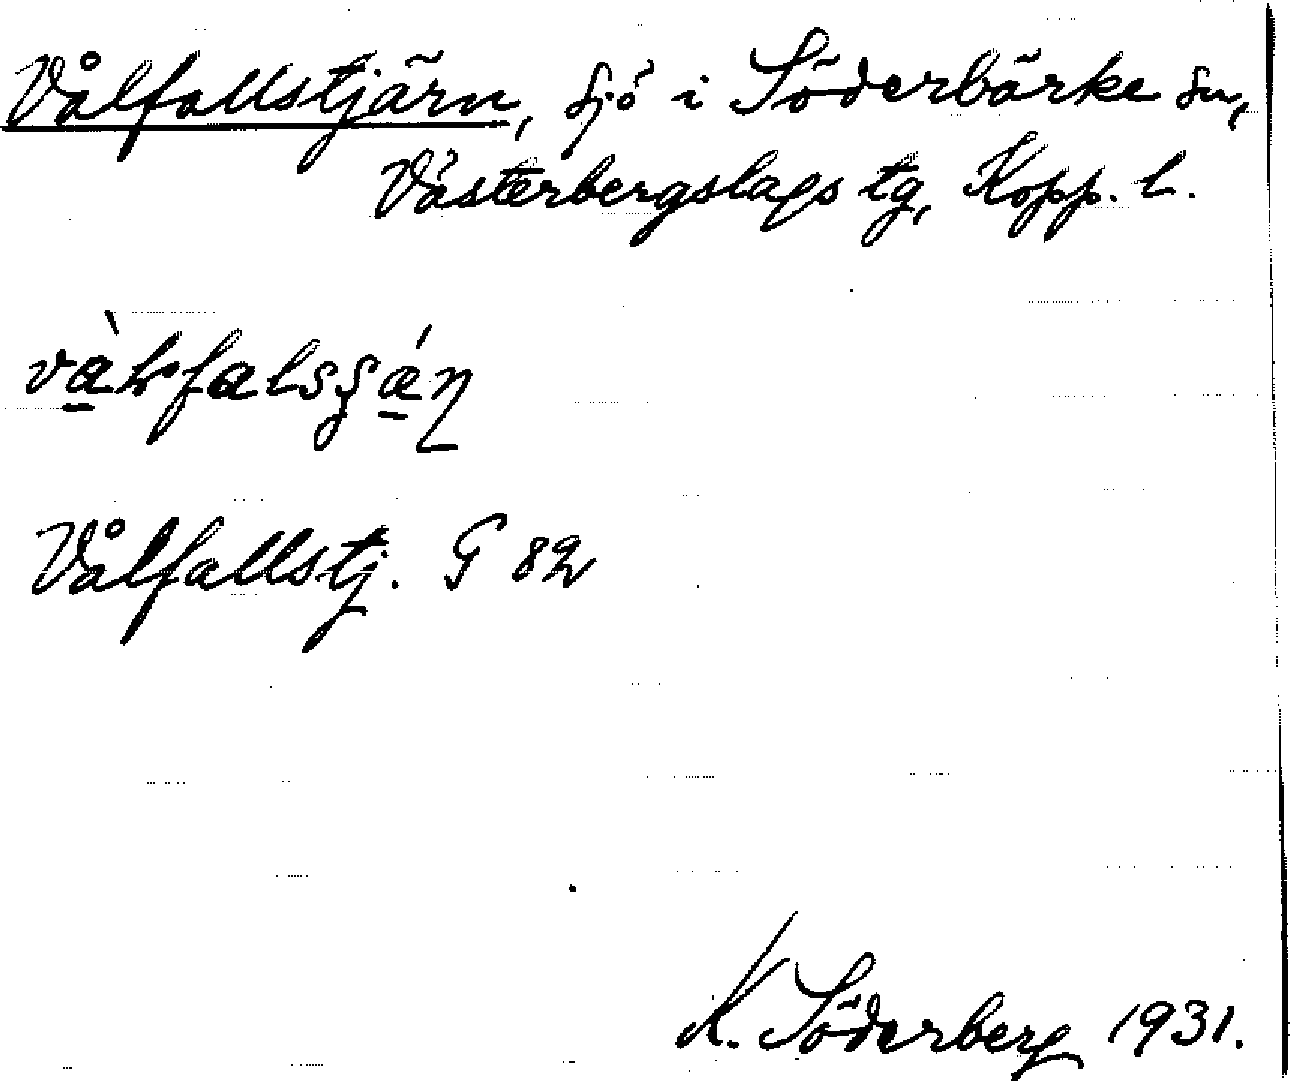 Vålfallstjärn, sjö i Söderbärke sn,
Västerbergslags tg, Kopp. l.
Vålfallstj. G 82
K. Söderberg 1931.